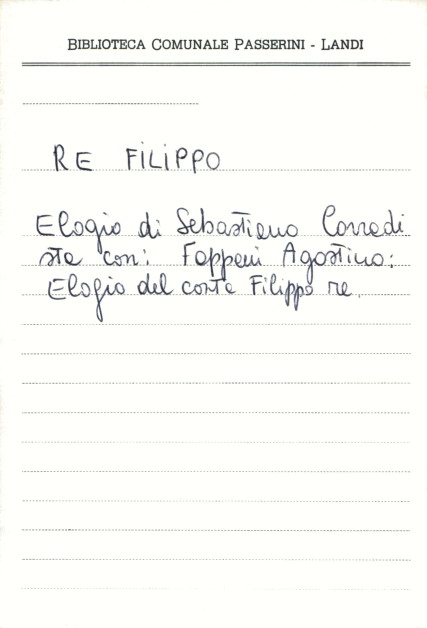 BIBLIOTECA COMUNALE PASSERINI - LANDI
RE FILIPPO
Elogio di Sebastiano Corradi
sta con: Fappani Agostino:
Elogio del conte Filippo re.